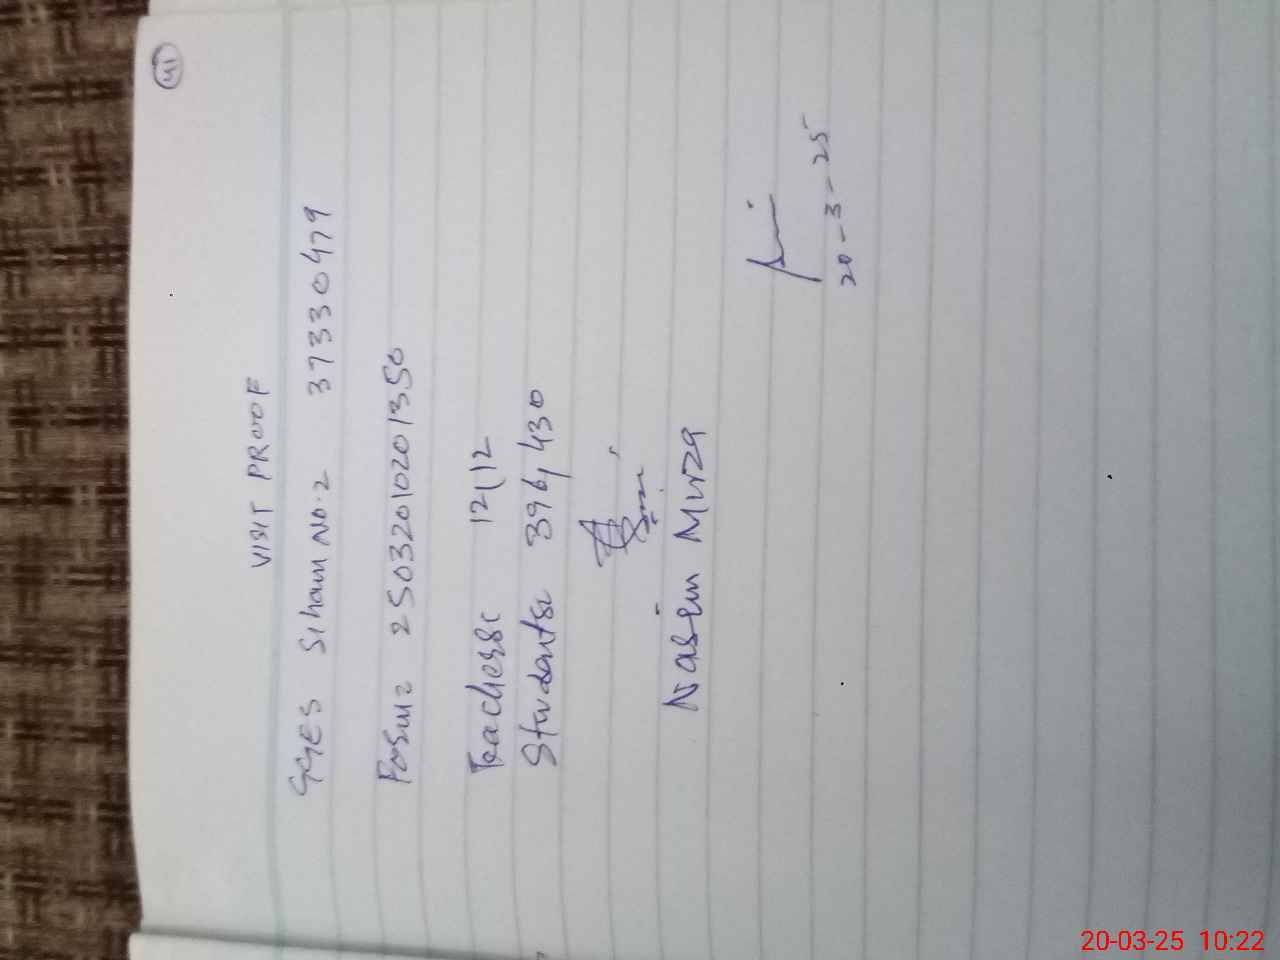 41
VISIT PROOF
GGES Siham NO.2 37330479
Form: 25032010201350
Teachers: 12/12
Students: 396/430
Nasim Mirza
20-3-25
20-03-25 10:22